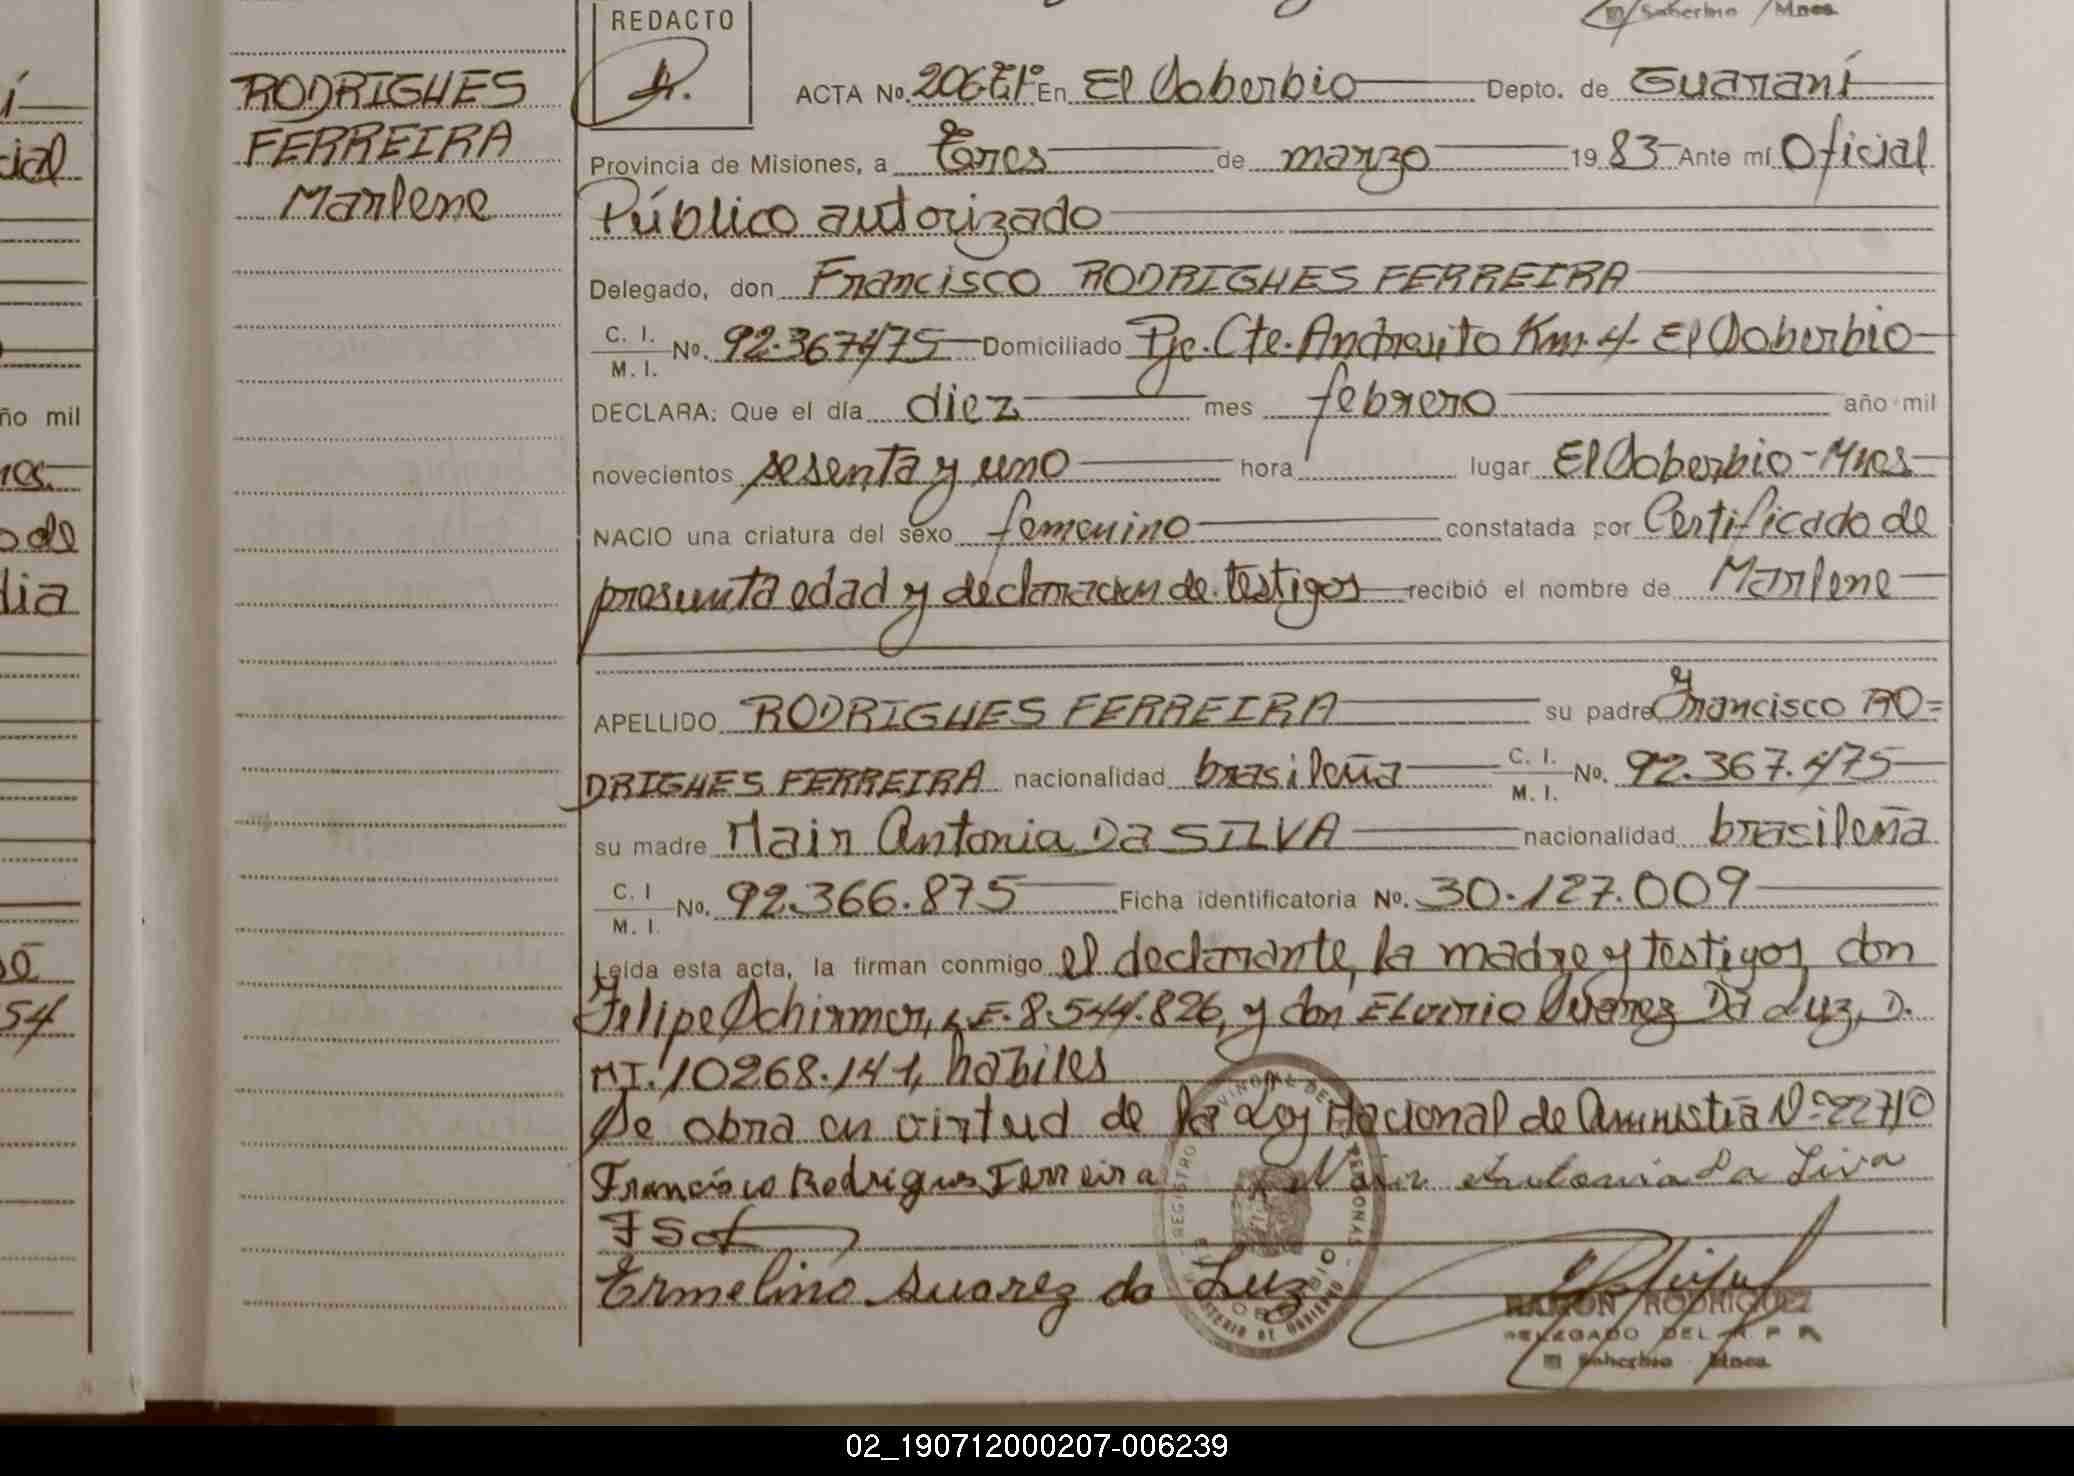 Soberbio / Mnes
REDACTO
RODRIGHES
FERREIRA
Marlene
ACTA No. 206 T.1º En El Soberbio Depto. de Guaraní
Provincia de Misiones, a Tres de marzo 1983 Ante mí Oficial
Público autorizado
Delegado, don Francisco RODRIGHES FERREIRA
C. I.
M. I. No. 92.367.475 Domiciliado Pje. Cte. Andresito Km. 4. El Soberbio
DECLARA: Que el día diez mes febrero año mil
novecientos sesenta y uno hora lugar El Soberbio - Mnes
NACIO una criatura del sexo femenino constatada por Certificado de
presunta edad y declaracion de testigos recibió el nombre de Marlene
APELLIDO RODRIGHES FERREIRA su padre Francisco RO=
DRIGHES FERREIRA nacionalidad brasileña C. I. M. I. No. 92.367.475
su madre Nair Antonia Da SILVA nacionalidad brasileña
C. I M. I. No. 92.366.875 Ficha identificatoria No. 30.127.009
Leída esta acta, la firman conmigo el declarante, la madre y testigos, don
Felipe Schirmer, L.E. 8.544.826, y don Suarez Da Luz, D.
NI. 10268.141, habiles
Se obra en virtud de la Ley Nacional de Amnistía Nº 22710
Francisco Rodrigues Ferreira Nair Antonia da Siva
Ermelino Suarez da Luz
RAMON RODRIGUEZ
DELEGADO DEL R P P
Soberbio Mnes
ial
ño mil
de
dia
54
02_190712000207-006239